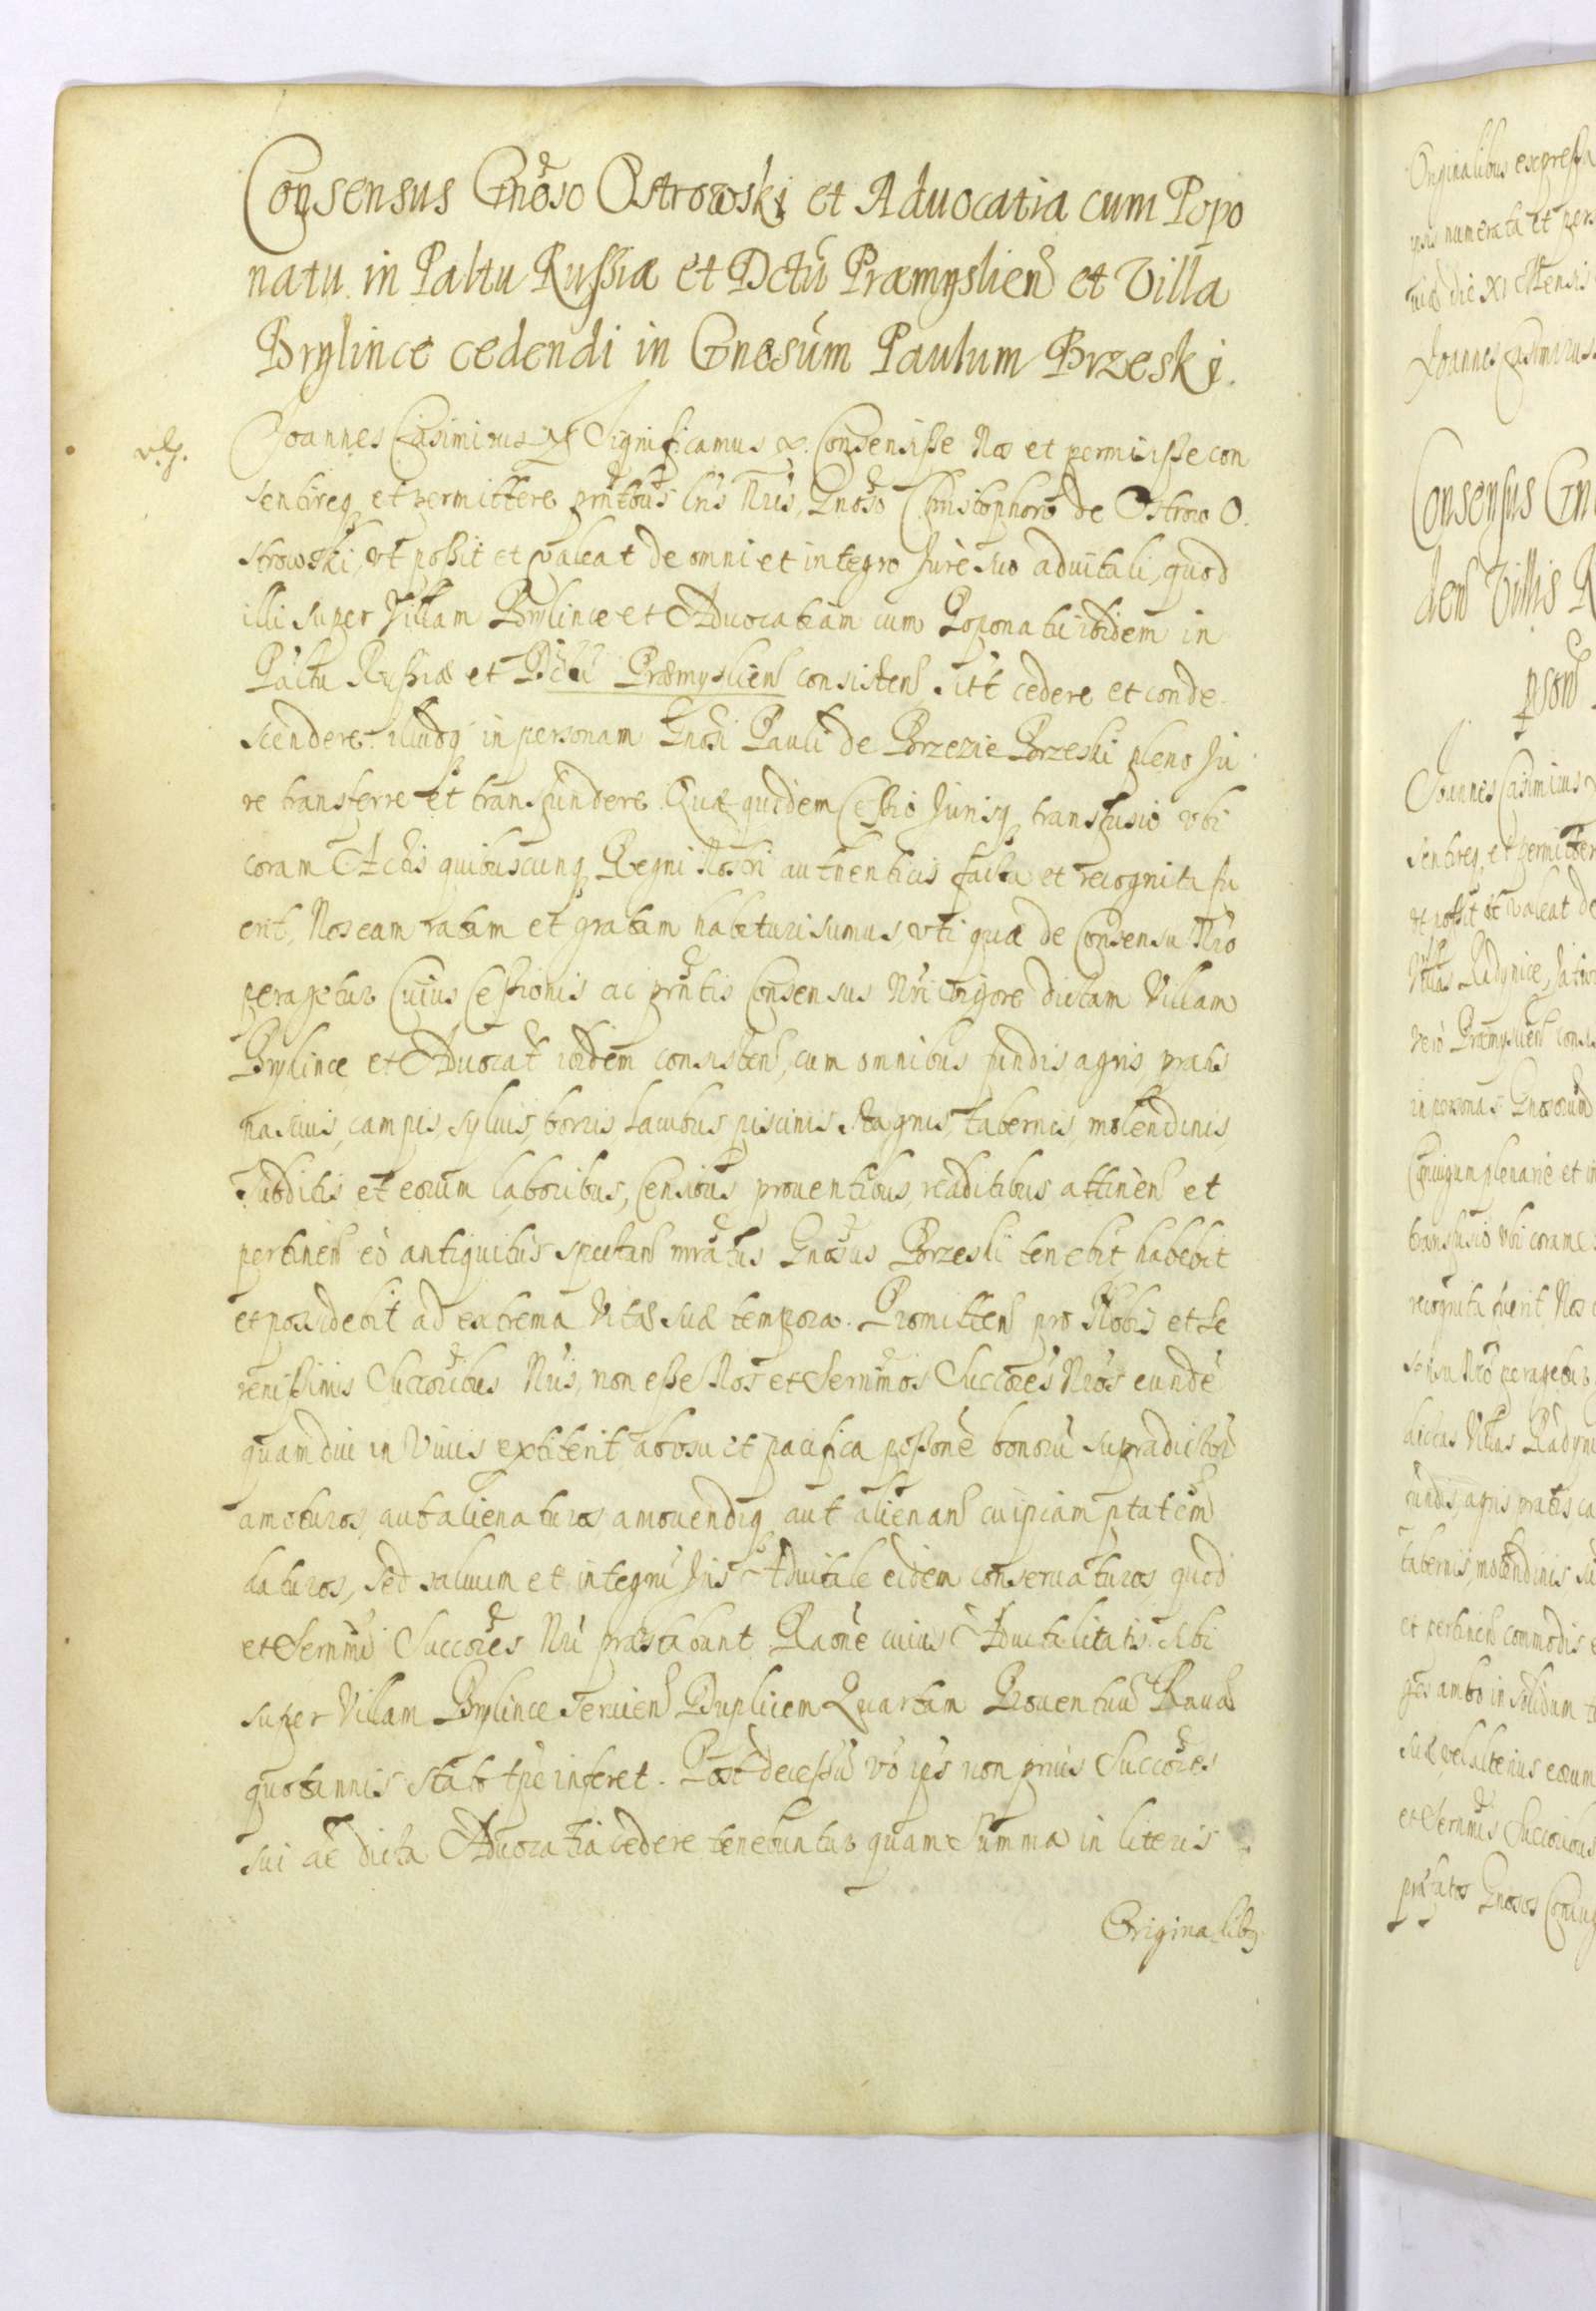 Consensus Gnoso Ostrowski et Aduocatia cum Popo
natu in Paltu Russiæ et Dctu Præmyslien et Villa
Brylince cedendi in Gnosum Paulum Brzeski.
Joannes Casimirus Significamus &. Consensisse Nos et permisisse con
sentireq et permittere pntbus lris Nris, Gnoso Christophoro de Ostrow O.
strowski, vt possit et valeat de omni et integro Jure suo aduitali, quod
illi super Villam Brylince et Aduocatiam cum Poponatu ibidem in
Paltu Russiæ et Dctu Præmyslien consisten sitt cedere et conde
scendere. illudq in personam Gnosi Pauli de Brzezie Brzeski pleno Ju
re transferre et transfundere. Quæ quidem Cessio Jurisq transfusio vbi
coram Actis quibuscunq Regni Nostri authenticis facta et recognita fu
erit, Nos eam ratam et gratam habituri sumus, vti quæ de Consensu Nro
peragetur Cuius Cessionis ac pntis Consensus Nri vigore dictam Villam
Brylince et Aduocat ibidem consisten, cum omnibus fundis agris, pratis
pascuis, campis, syluis, borris lacubus piscinis stagnis, tabernis, molendinis,
Subditis et eorum laboribus, Censibus prouentibus, redditibus attinen et
pertinen eò antiquitus spectan mratus Gnosus Brzeski tenebit habebit
et possidebit ad extrema vitæ suæ tempora. Promitten pro Nobis et Se
renissimis Succoribus Nris, non esse Nos et Sernmos Succores Nros eundē
quamdiu in viuis extiterit ab vsu et pacifica possone bonorū supradictor
amoturos, aut alienaturos amouendiq aut alienan cuipiam ptatem
daturos, sed saluum et integrū Jus Aduitale eidem conseruaturos, quod
et Sernmi Succores Nri præstabunt Raone cuius Aduitalitatis sibi
super Villam Brylince seruien Duplicem Quartam Prouentuū
quotannis Stato tpe inferet. Post decessū vo ipsius non prius Succores
sui de dicta Aduocatia cedere tenebuntur quam Summa in literis
Originalibq
Originalibus expressa
ipsis numerata et pers
die XI Mensis
Joannes Casimirus
Consensus Gn
den Villis R
pson
Joannes Casimirus
sentireq, et permitter
vt possit et valeat de
Villas Radynice,
vero Præmyslien consis
in personas Gnosorum
Coniugum plenarie et in
transfusio vbi coram
recognita fuerit Nos
sensu Nro peragetur
dictas Villas Radyni
fundis, agris pratis, ca
tabernis, molendinis, su
et pertinen commodis e
ges ambo in solidum t
suæ vel alterius eorum
et Sernmis Succoribus
præfatos Gnosos Coniug